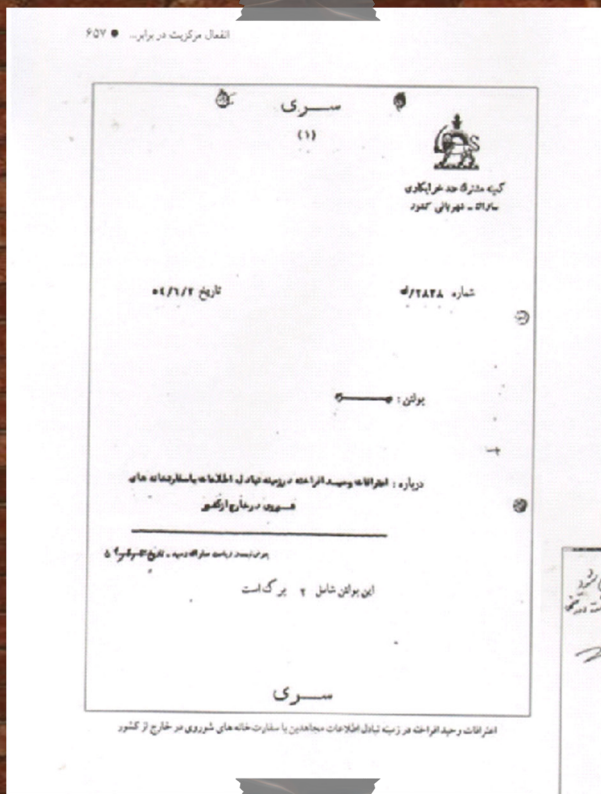 انفعال مرکزیت در برابر... ● ۶۵۷
سـری
(۱)
کمیته مشترک ضد خرابکاری
ساواک ـ شهربانی کشور
شماره
تاریخ ۵٤/٦/۲
بولتن :
درباره : اعترافات وحید افراخته در زمینه تبادل اطلاعات با سفارتخانه های
شوروی در خارج از کشور
این بولتن شامل ۲ برگ است
سـری
اعترافات وحید افراخته در زمینه تبادل اطلاعات مجاهدین با سفارت‌خانه‌های شوروی در خارج از کشور